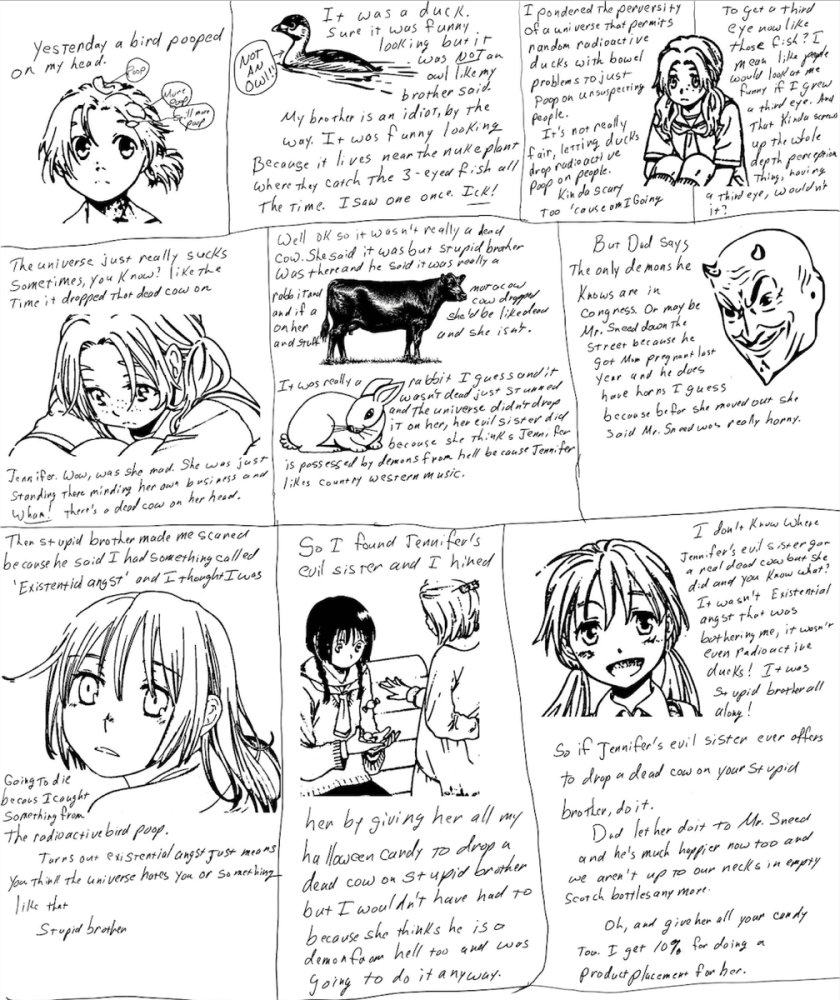 Yesterday a bird pooped
on my head.
Poop
More
Poop
Still more
poop
It was a duck.
Sure it was funny
looking but it
was NOT an
owl like my
brother said.
NOT
AN
OWL!!!
My brother is an idiot, by the
way. It was funny looking
Because it lives near the nuke plant
where they catch the 3-eyed fish all
The Time. I saw one once. Ick!
I pondered the perversity
of a universe that permits
random radioactive
ducks with bowel
problems to just
Poop on unsuspecting
people.
It's not really
fair, letting ducks
drop radioactive
Poop on people.
Kinda scary
Too 'cause am I Going
To get a third
eye now like
those fish? I
mean like people
would look at me
funny if I grew
a third eye. And
That Kinda screws
up the whole
depth perception
Thing, having
a third eye, wouldn't
it?
The universe just really sucks
Sometimes, you know? like the
Time it dropped that dead cow on
Jennifer. Wow, was she mad. She was just
Standing There minding her own business and
Wham! there's a dead cow on her head.
Well OK so it wasn't really a dead
cow. She said it was but stupid brother
was there and he said it was really a
rabbit and not a cow
and if a cow dropped
on her she'd be like dead
and stuff and she isn't.
It was really a rabbit I guess and it
wasn't dead just stunned
and The universe didn't drop
iT on her, her evil sister did
because she thinks Jennifer
is possessed by demons from hell because Jennifer
likes country western music.
But Dad Says
The only demons he
Knows are in
Congress. Or may be
Mr. Sneed down the
Street because he
got Mom pregnant last
year and he does
have horns I guess
because befor she moved out she
said Mr. Sneed was really horny.
Then stupid brother made me scared
because he said I had something called
'Existential angst' and I thought I was
Going To die
becaus I caught
Something from
The radioactive bird poop.
Turns out existential angst just means
you think the universe hates you or something
like that
Stupid brother
So I found Jennifer's
evil sister and I hired
her by giving her all my
halloween candy to drop a
dead cow on stupid brother
but I wouldn't have had to
because she thinks he is a
demon from hell too and was
going to do it anyway.
I don't Know Where
Jennifer's evil sister got
a real dead cow but she
did and you Know what?
It wasn't Existential
angst that was
bothering me, it wasn't
even radioactive
ducks! It was
Stupid brother all
along!
So if Jennifer's evil sister ever offers
to drop a dead cow on your stupid
brother, do it.
Dad let her do it to Mr. Sneed
and he's much happier now too and
we aren't up to our necks in empty
scotch bottles any more.
Oh, and give her all your candy
Too. I get 10% for doing a
product placement for her.